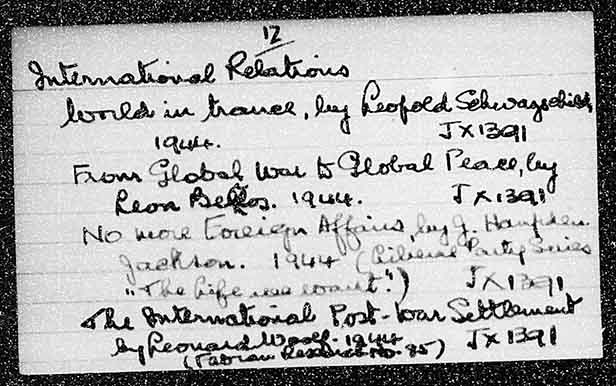 12
International Relations
World in trance, by Leopold Schwarzschild,
1944. JX1391
From Global War to Global Peace, by
Leon Bellos. 1944. JX1391
No more Foreign Affairs, by J. Hampden
Jackson. 1944 (Liberal Party Series
"The life we want".) JX1391
The International Post-War Settlement
by Leonard Woolf. 1944
(Fabian Research No. 85) JX1391